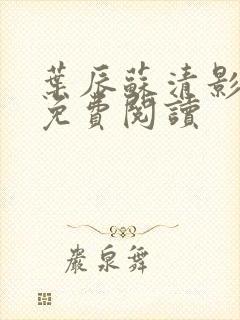 葉辰蘇清影
免費閱讀
嚴泉舞